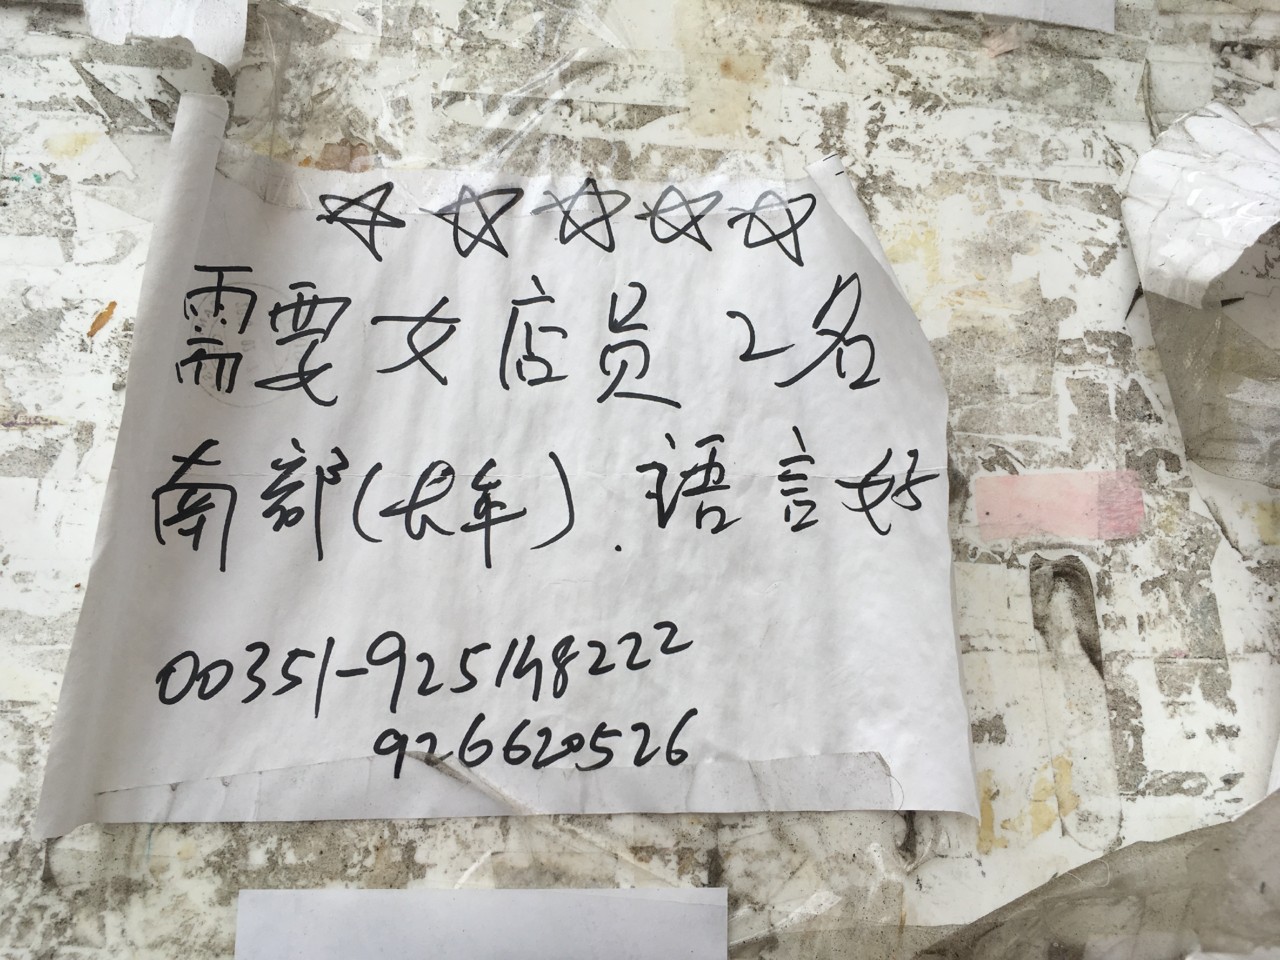 需要女店员2名
南部(长年).语言好
00351-925148222
926620526